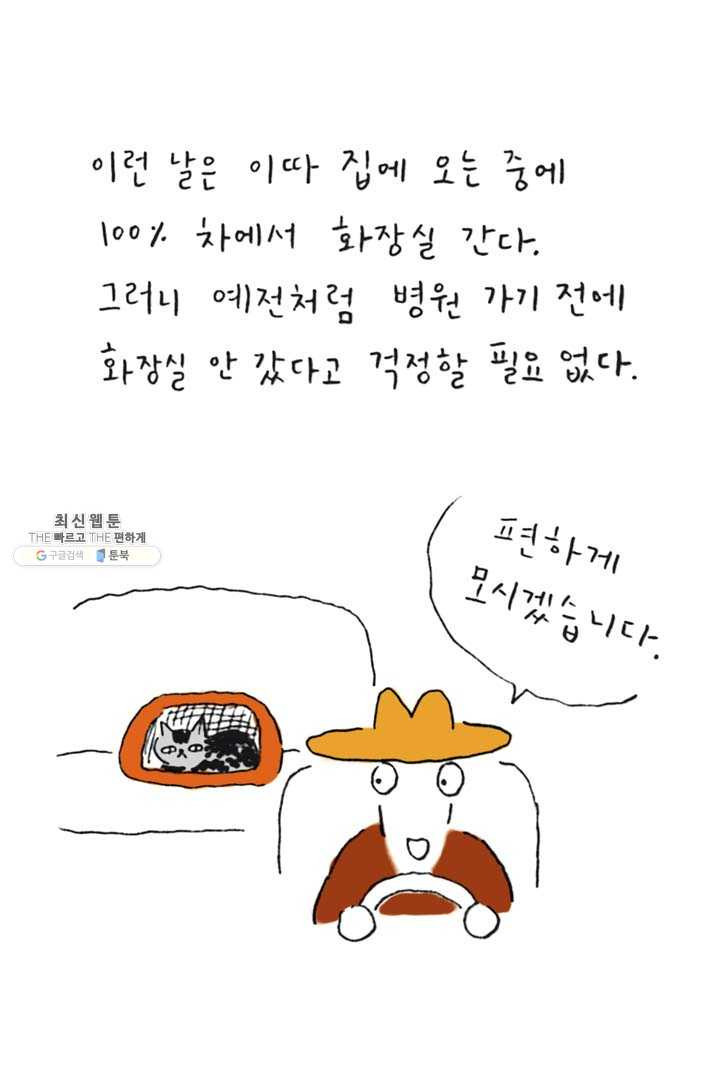 이런 날은 이따 집에 오는 중에
100% 차에서 화장실 간다.
그러니 예전처럼 병원 가기 전에
화장실 안 갔다고 걱정할 필요 없다.
최신웹툰
THE 빠르고 THE 편하게
구글검색 툰북
편하게
모시겠습니다.